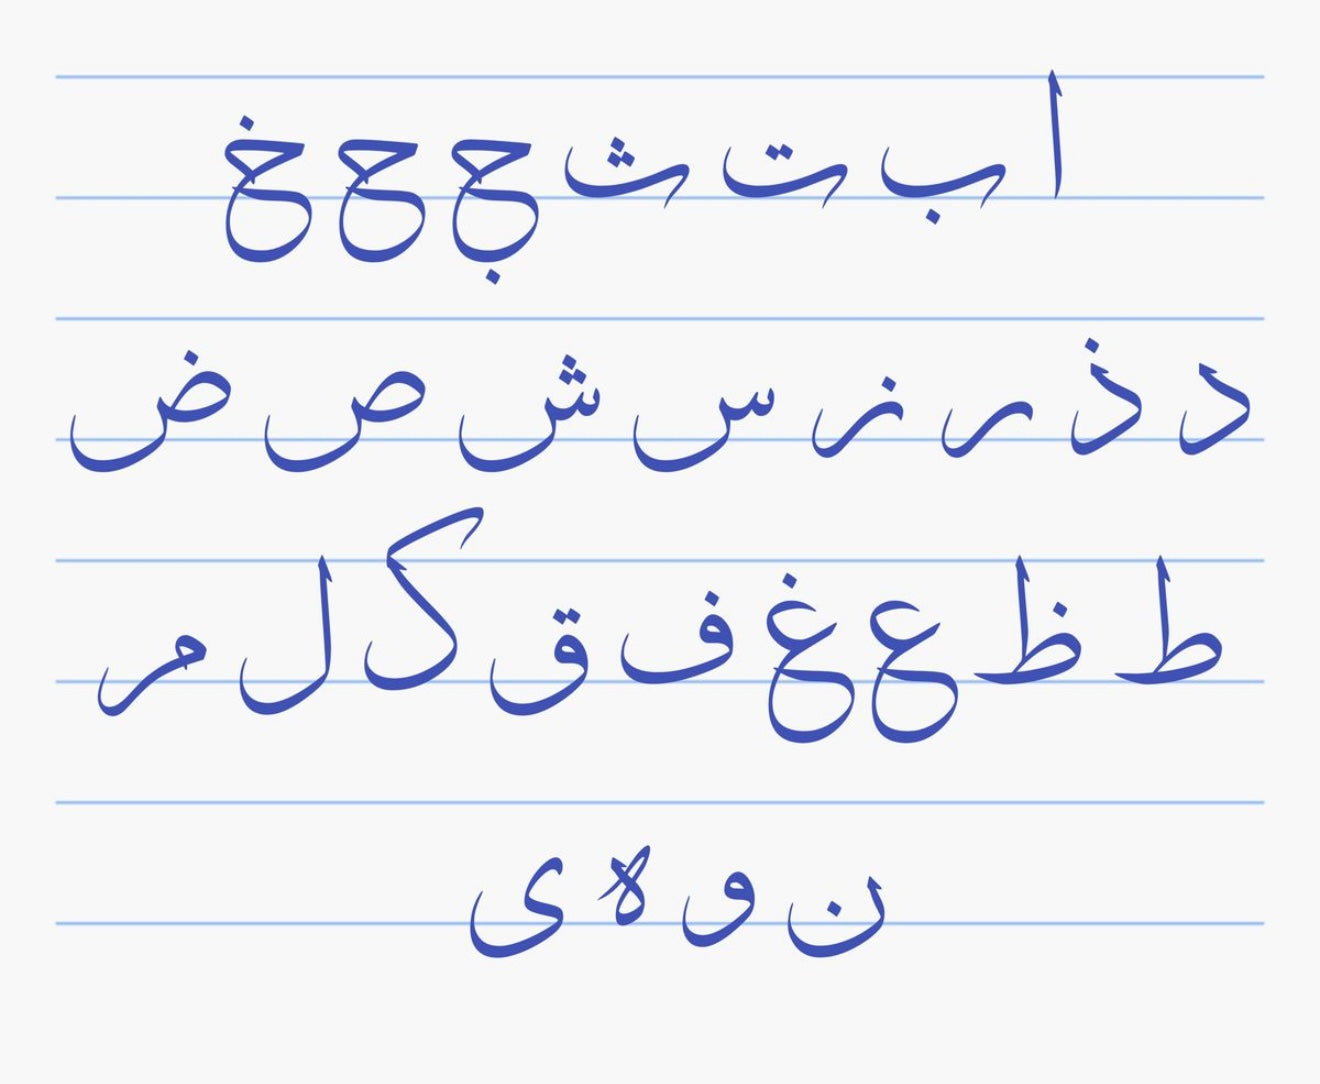 ا ب ت ث ج ح خ
د ذ ر ز س ش ص ض
ط ظ ع غ ف ق ک ل م
ن و ه ی